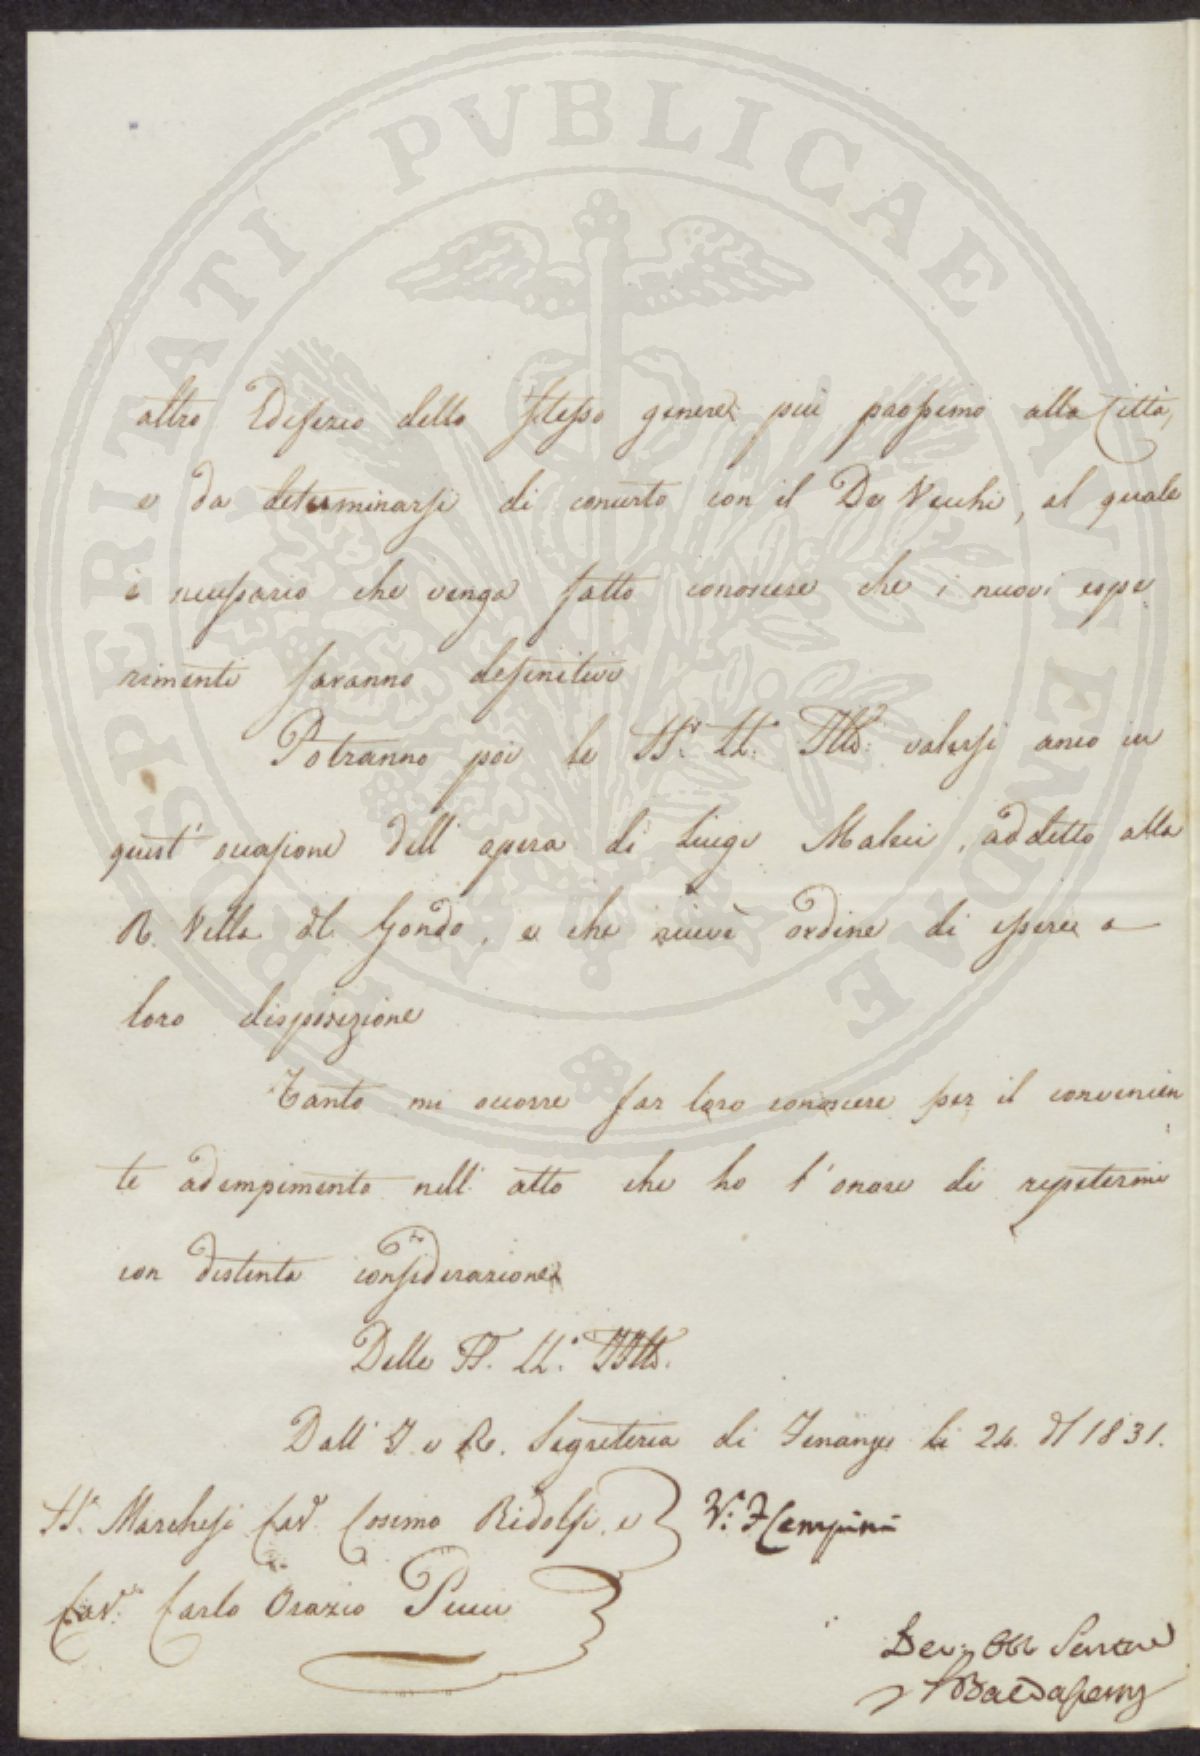 PROSPERITATI PVBLICAE AVGENDAE
altro Edifizio dello stesso genere più prossimo alla Città,
e da determinarsi di concerto con il De Vecchi, al quale
è necessario che venga fatto conoscere che i nuovi espe
rimenti saranno definitivi
Potranno poi le SS.e LL. Ill. valersi anco in
quest' occasione dell' opera di Luigi , addetto alla
R. Villa del , e che ricevè ordine di essere a
loro disposizione
Tanto mi occorre far loro conoscere per il convenien
te adempimento nell' atto che ho l'onore di ripetermi
con distinta considerazione
Delle SS. LL. Ill.
Dall' I. e R. Segreteria di Finanze li 24. 1831.
SS.i Marchesi Cav. Cosimo Ridolfi, e
V.o F Cempini
Cav. Carlo Orazio Pucci
Dev. Obb Servitore